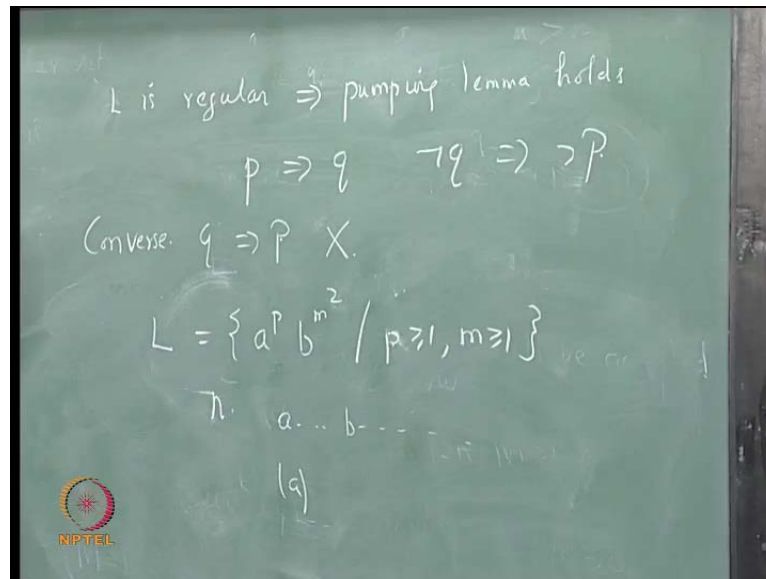 L is regular ⇒ pumping lemma holds
p ⇒ q ¬q ⇒ ¬P.
Converse. q ⇒ P X.
L = { a^p b^{m^2} / p ≥ 1, m ≥ 1 }
n. a... b----
(a)
NPTEL